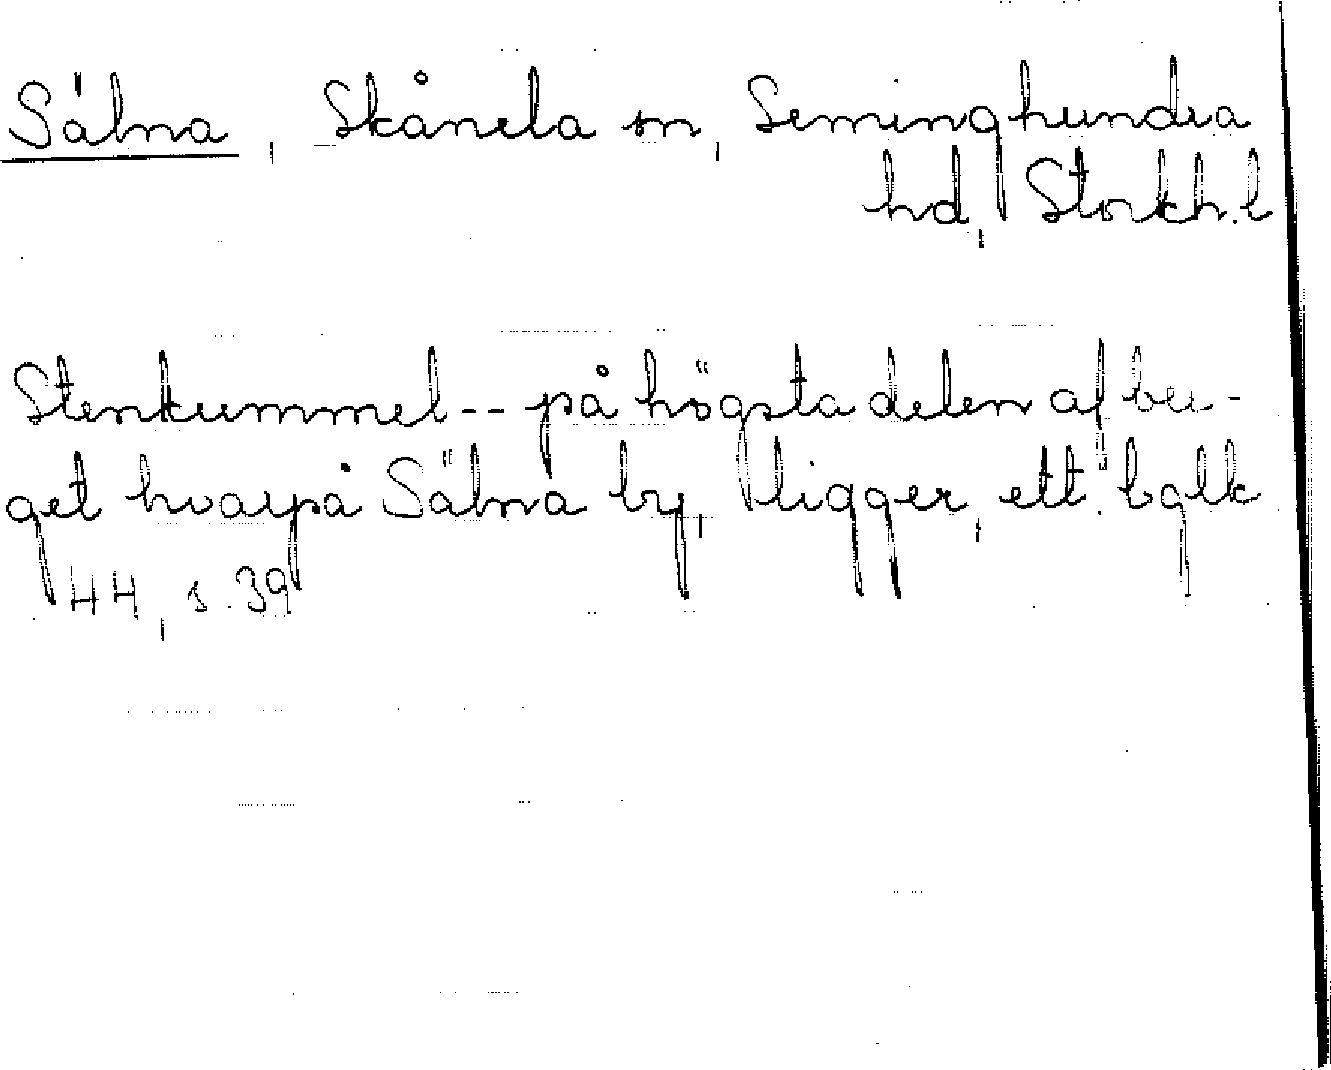 Sälna, Skånela sn, Seminghundra
hd, Stockh. l
Stenkummel -- på högsta delen af ber-
get hvarpå Sälna by, ligger, ett bälk
44, s. 39